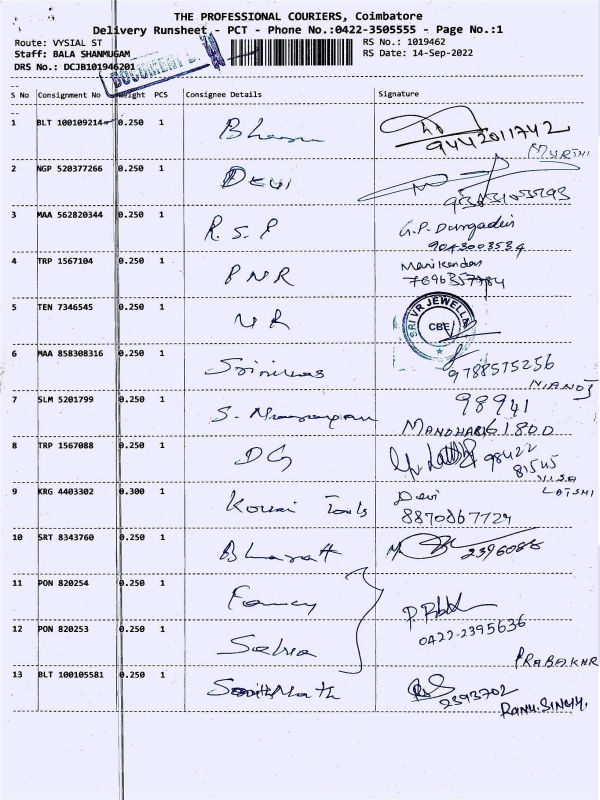 THE PROFESSIONAL COURIERS, Coimbatore
Delivery Runsheet - PCT - Phone No.:0422-3505555 - Page No.:1
Route: VYSIAL ST
RS No.: 1019462
Staff: BALA SHANMUGAM
RS Date: 14-Sep-2022
DRS No.: DCJB101946201
S No Consignment No Weight PCS Consignee Details Signature
1 BLT 100109214 0.250 1
9442011742
MURTHI
2 NGP 520377266 0.250 1 DEVI
3 MAA 562820344 0.250 1 R.S.P G.P. Durgadevi
9043003534
4 TRP 1567104 0.250 1 PNR Manikandan
5 TEN 7346545 0.250 1 NR SRI VR JEWELLERY CBE
6 MAA 858308316 0.250 1 Srinivas
9788575256
7 SLM 5201799 0.250 1 98941
MANOHAR 61800
8 TRP 1567088 0.250 1 DG 98422
81545
9 KRG 4403302 0.300 1 Kovai Tools Devi
8870867724
10 SRT 8343760 0.250 1 Bharatt 2396086
11 PON 820254 0.250 1 Fancy
12 PON 820253 0.250 1
0422-2395636
PRABAKAR
13 BLT 100105581 0.250 1
2393702
RANU.SINGH.